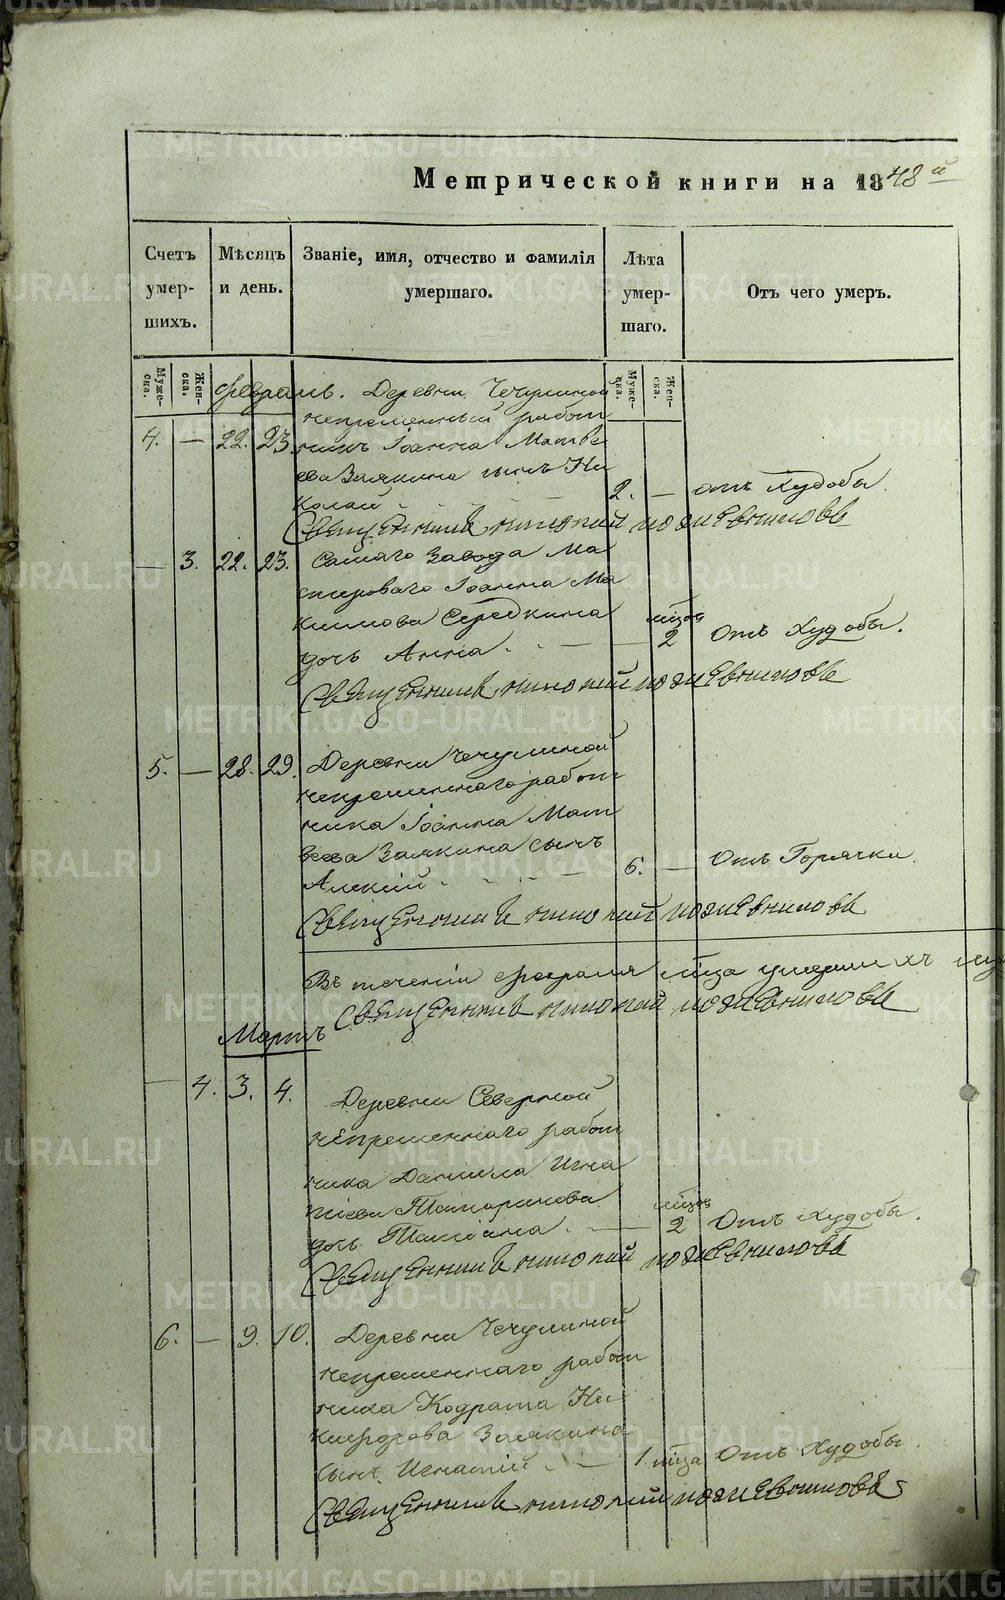 Метрической книги на 1848й
Счетъ умер- шихъ.
Мѣсяцъ и день.
Званіе, имя, отчество и фамилія умершаго.
Лѣта умер- шаго.
Отъ чего умеръ.
Муже- ска.
Жен- ска.
Муже- ска.
Жен- ска.
Февраль. Деревни Чечулиной
непременный работ
4. — 22. 23. никъ Іоанна Матве
ева Заякина сынъ Ни
колай 2. — отъ Худобы.
Священникъ
— 3. 22. 23. Самаго Завода Ма
стероваго Іоанна Ма
кимова Середкина
дочь Анна. — мѣцов 2 Отъ Худобы.
Священникъ
5. — 28. 29. Деревни Чечулиной
непременнаго работ
ника Іоанна Мат
веева Заякина сынъ
Алексій 6. — Отъ Горячки.
Священникъ
Въ теченіи февраля мѣца умершихъ
Священникъ
Мартъ
— 4. 3. 4. Деревни Северной
непременнаго работ
ника Данила Игна
тіева Татаринова
дочь Татіана. — мѣцов 2 Отъ Худобы.
Священникъ
6. — 9. 10. Деревни Чечулиной
непременнаго работ
ника Кодрата Ни
кифорова Заякина
сынъ Игнатій — 1 мѣца Отъ Худобы.
Священникъ
METRIKI.GASO-URAL.RU